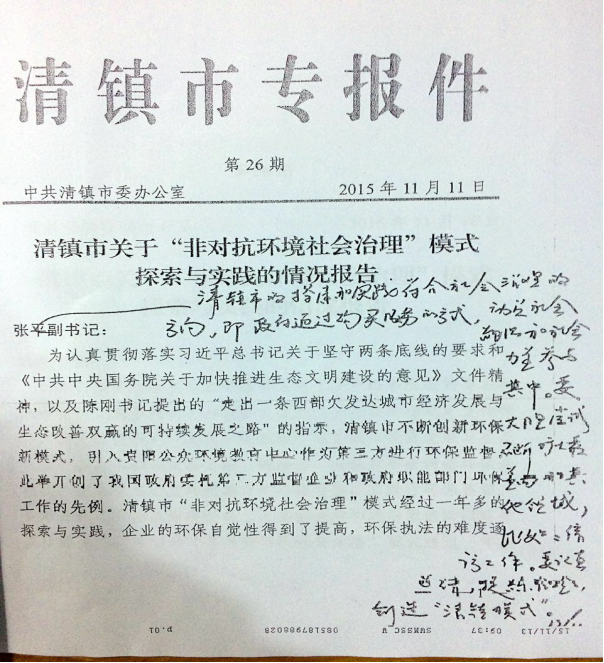 清镇市专报件
第26期
中共清镇市委办公室 2015年11月11日
清镇市关于“非对抗环境社会治理”模式
探索与实践的情况报告
清镇市的探索和实践符合社会治理的
方向，即政府通过购买服务的方式，动员社会
组织和社会
力量参与
其中。要
大胆尝试
不断
创造“清镇模式”。
张平副书记：
为认真贯彻落实习近平总书记关于坚守两条底线的要求和
《中共中央国务院关于加快推进生态文明建设的意见》文件精
神，以及陈刚书记提出的“走出一条西部欠发达城市经济发展与
生态改善双赢的可持续发展之路”的指示，清镇市不断创新环保
新模式，引入贵阳公众环境教育中心作为第三方进行环保监督，
此举开创了我国政府实机第三方监督企业和政府职能部门环保
工作的先例。清镇市“非对抗环境社会治理”模式经过一年多的
探索与实践，企业的环保自觉性得到了提高，环保执法的难度逐
15/11/13 09:37 085187988028 P.01